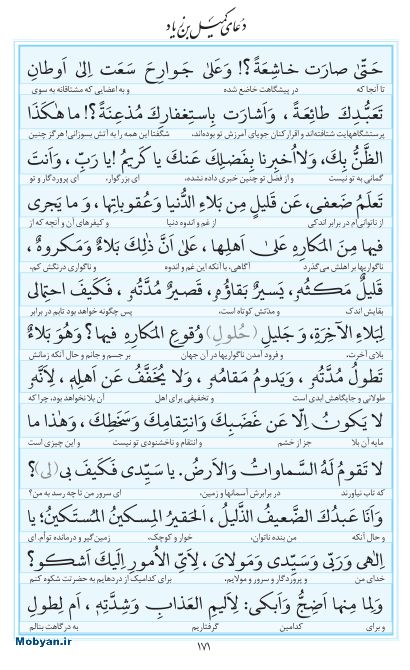 دعای کمیل بن زیاد
حَتّىٰ صارَت خاشِعَةً؟! وَعَلىٰ جَوارِحَ سَعَت اِلىٰ اَوطانِ
تا آنجا که در پیشگاهت خاضع شده و به اعضایی که مشتاقانه به سوی
تَعَبُّدِكَ طائِعَةً ، وَاَشارَت بِاستِغفارِكَ مُذعِنَةً؟! ما هٰكَذَا
پرستشگاههایت شتافته‌اند و اقرار کنان جویای آمرزش تو بوده‌اند، شگفتا این همه را به آتش بسوزانی! هرگز چنین
الظَّنُّ بِكَ، وَلااُخبِرنا بِفَضلِكَ عَنكَ يا كَريمُ !يا رَبِّ ، وَاَنتَ
گمانی به تو نیست و از فضل تو چنین خبری داده نشده، ای بزرگوار، ای پروردگار و تو
تَعلَمُ ضَعفى، عَن قَليلٍ مِن بَلاءِ الدُّنيا وَعُقوباتِها ، وَ ما يَجرى
از ناتوانی‌ام در برابر اندکی از غم و اندوه دنیا و کیفرهای آن و آنچه که از
فيها مِنَ المَكارِهِ عَلىٰ اَهلِها ، عَلىٰ اَنَّ ذٰلِكَ بَلاءٌ وَمَكروهٌ ،
ناگواریها بر اهلش می‌گذرد آگاهی، با آنکه این غم و اندوه و ناگواری درنگش کم،
قَليلٌ مَكثُهُ، يَسيرٌ بَقاؤُهُ، قَصيرٌ مُدَّتُهُ، فَكَيفَ احتِمالى
بقایش اندک و مدتش کوتاه است، پس چگونه خواهد بود تابم در برابر
لِبَلاءِ الآخِرَةِ، وَ جَليلِ (حُلولِ) وُقوعِ المَكارِهِ فيها؟ وَهُوَ بَلاءٌ
بلای آخرت، و فرود آمدن ناگواریها در آن جهان بر جسم و جانم و حال آنکه زمانش
تَطولُ مُدَّتُهُ ، وَيَدومُ مَقامُهُ ، وَلا يُخَفَّفُ عَن اَهلِهِ ، لِاَنَّهُ
طولانی و جایگاهش ابدی است و تخفیفی برای اهل آن بلا نخواهد بود، چرا که
لا يَكونُ اِلّا عَن غَضَبِكَ وَانتِقامِكَ وَسَخَطِكَ ، وَهٰذا ما
مایه آن بلا جز از خشم و انتقام و ناخشنودی تو نیست و این چیزی است
لا تَقومُ لَهُ السَّماواتُ وَالاَرضُ. يا سَيِّدى فَكَيفَ بى (لى)؟
که تاب نیاورند در برابرش آسمانها و زمین، ای سرور من تا چه رسد به من؟
وَاَنَا عَبدُكَ الضَّعيفُ الذَّليلُ ، الحَقيرُ المِسكينُ المُستَكينُ؛ يا
و حال آنکه من بنده ناتوان، خوار و کوچک، زمین‌گیر و درمانده توأم. ای
اِلٰهى وَرَبّى وَسَيِّدى وَمَولاىَ ، لِاَىِّ الاُمورِ اِلَيكَ اَشكو؟
خدای من و پروردگار و سرور و مولایم، برای کدامیک از دردهایم به حضرتت شکوه کنم
وَلِما مِنها اَضِجُّ وَاَبكى: لِاَليمِ العَذابِ وَشِدَّتِهِ ، اَم لِطولِ
و برای کدامین گرفتاریم به درگاهت بنالم
۱۷۱
Mobyan.ir